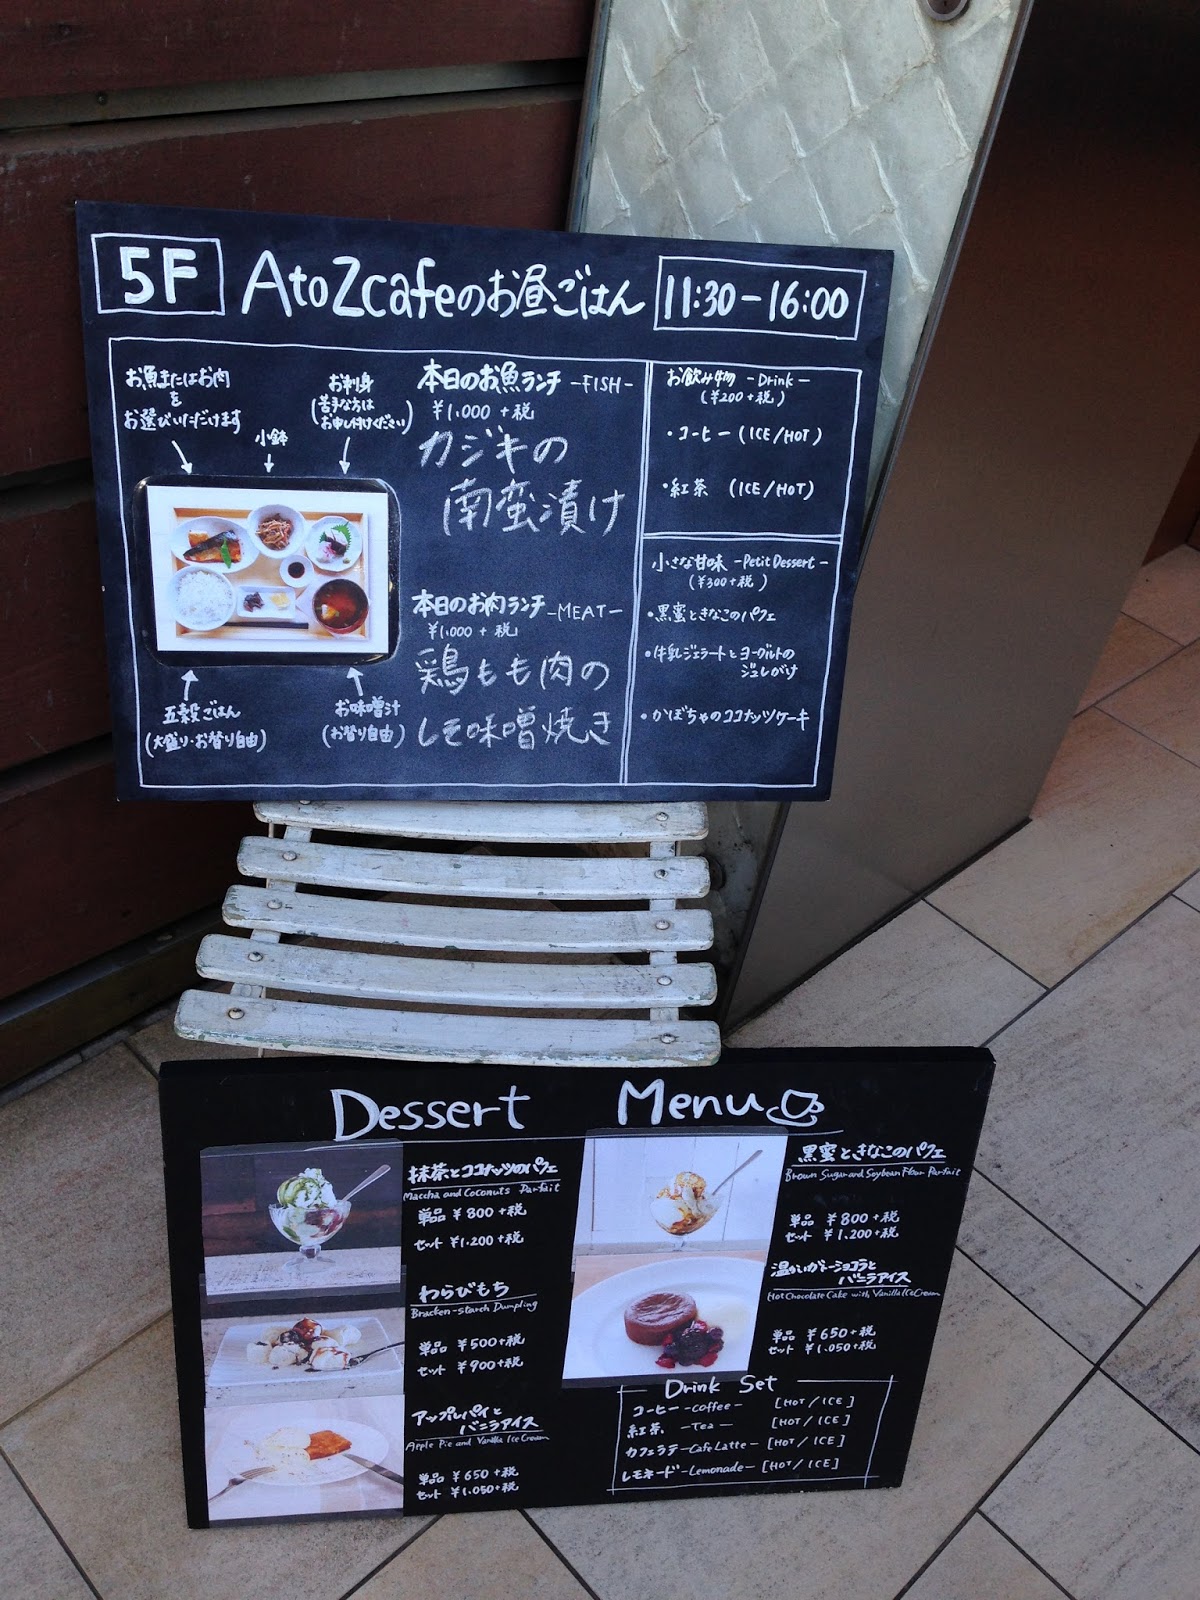 5F
AtoZcafeのお昼ごはん
11:30-16:00
お魚またはお肉
を
お選びいただけます
小鉢
お刺身
(苦手な方は
お申し付けください)
五穀ごはん
(大盛り・お替り自由)
お味噌汁
(お替り自由)
本日のお魚ランチ -FISH-
¥1,000 +税
カジキの
南蛮漬け
本日のお肉ランチ -MEAT-
¥1,000 +税
鶏もも肉の
しそ味噌焼き
お飲み物 -Drink-
(¥200+税)
・コーヒー (ICE/HOT)
・紅茶 (ICE/HOT)
小さな甘味 -Petit Dessert-
(¥300+税)
・黒蜜ときなこのパフェ
・牛乳ジェラートとヨーグルトの
ジュレがけ
・かぼちゃのココナッツケーキ
Dessert Menu
抹茶とココナッツのパフェ
Maccha and Coconuts Parfait
単品 ¥800+税
セット ¥1.200+税
わらびもち
Bracken-starch Dumpling
単品 ¥500+税
セット ¥900+税
アップルパイと
バニラアイス
Apple Pie and Vanilla Ice Cream
単品 ¥650+税
セット ¥1.050+税
黒蜜ときなこのパフェ
Brown Sugar and Soybean Flour Parfait
単品 ¥800+税
セット ¥1.200+税
温かいガトーショコラと
バニラアイス
Hot Chocolate Cake with Vanilla Ice Cream
単品 ¥650+税
セット ¥1.050+税
Drink Set
コーヒー -coffee- [HOT/ICE]
紅茶 -Tea- [HOT/ICE]
カフェラテ -Cafe Latte- [HOT/ICE]
レモネード -Lemonade- [HOT/ICE]